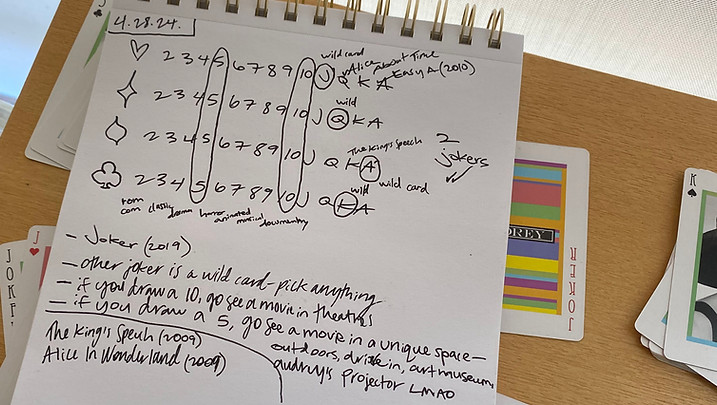 4.28.24.
wild card
Alice About Time
♡ 2 3 4 5 6 7 8 9 10 J Q K A Easy A (2010)
wild
2 3 4 5 6 7 8 9 10 J Q K A
The King's Speech
2 3 4 5 6 7 8 9 10 J Q K A
2 jokers
wild wild card
♣ 2 3 4 5 6 7 8 9 10 J Q K A
rom com classic drama horror animated musical documentary
- Joker (2019)
- other joker is a wild card - pick anything
- if you draw a 10, go see a movie in theatres
- if you draw a 5, go see a movie in a unique space -
outdoors, drive in, art museum,
audrey's projector LMAO
The King's Speech (2009)
Alice In Wonderland (2009)
REY
JOKER
JOKE
J
K